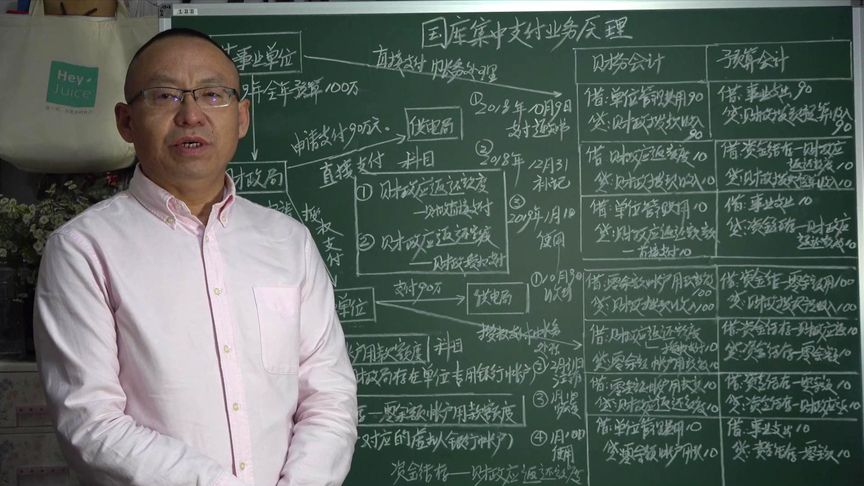 Hey,
Juice
国库集中支付业务原理
事业单位
直接支付 财务处理
年全年预算100万
申请支付90万元
供电局
直接支付 科目
财政局
① 财政应返还额度
—财政直接支付
② 财政应返还额度
—财政授权支付
授权支付
单位
支付90万
供电局
授权支付业务
用款额度 科目
财政局存在单位专用银行账户
—零余额账户用款额度
对应的虚拟(银行账户)
资金结存——财政应返还额度
①2018年10月9日
②2018年12月31
补记
③
2019年1月1日
使用
①10月9日
收到
②12月31日
③1月1日
④1月10日
使用
财务会计
预算会计
借:单位管理费用90
贷:财政拨款收入
90
借:事业支出90
贷:财政拨款预算收入
90
借:财政应返还额度10
贷:财政拨款收入10
借:资金结存—财政应
返还额度10
贷:财政拨款预算收入10
借:单位管理费用10
贷:财政应返还额度
—直接支付10
借:事业支出10
贷:资金结存—财政应
返还额度10
借:零余额账户用款额度
100
贷:财政拨款收入100
借:资金结存—零余额100
贷:财政拨款预算收入100
借:财政应返还额度
贷:零余额账户用款额度10
借:资金结存—财政应返10
贷:资金结存—零余额10
借:零余额账户用款额度10
贷:财政应返还额度10
借:资金结存—零余额10
贷:资金结存—财政应返10
借:单位管理费用10
贷:零余额账户用款10
借:事业支出10
贷:资金结存—零余额10